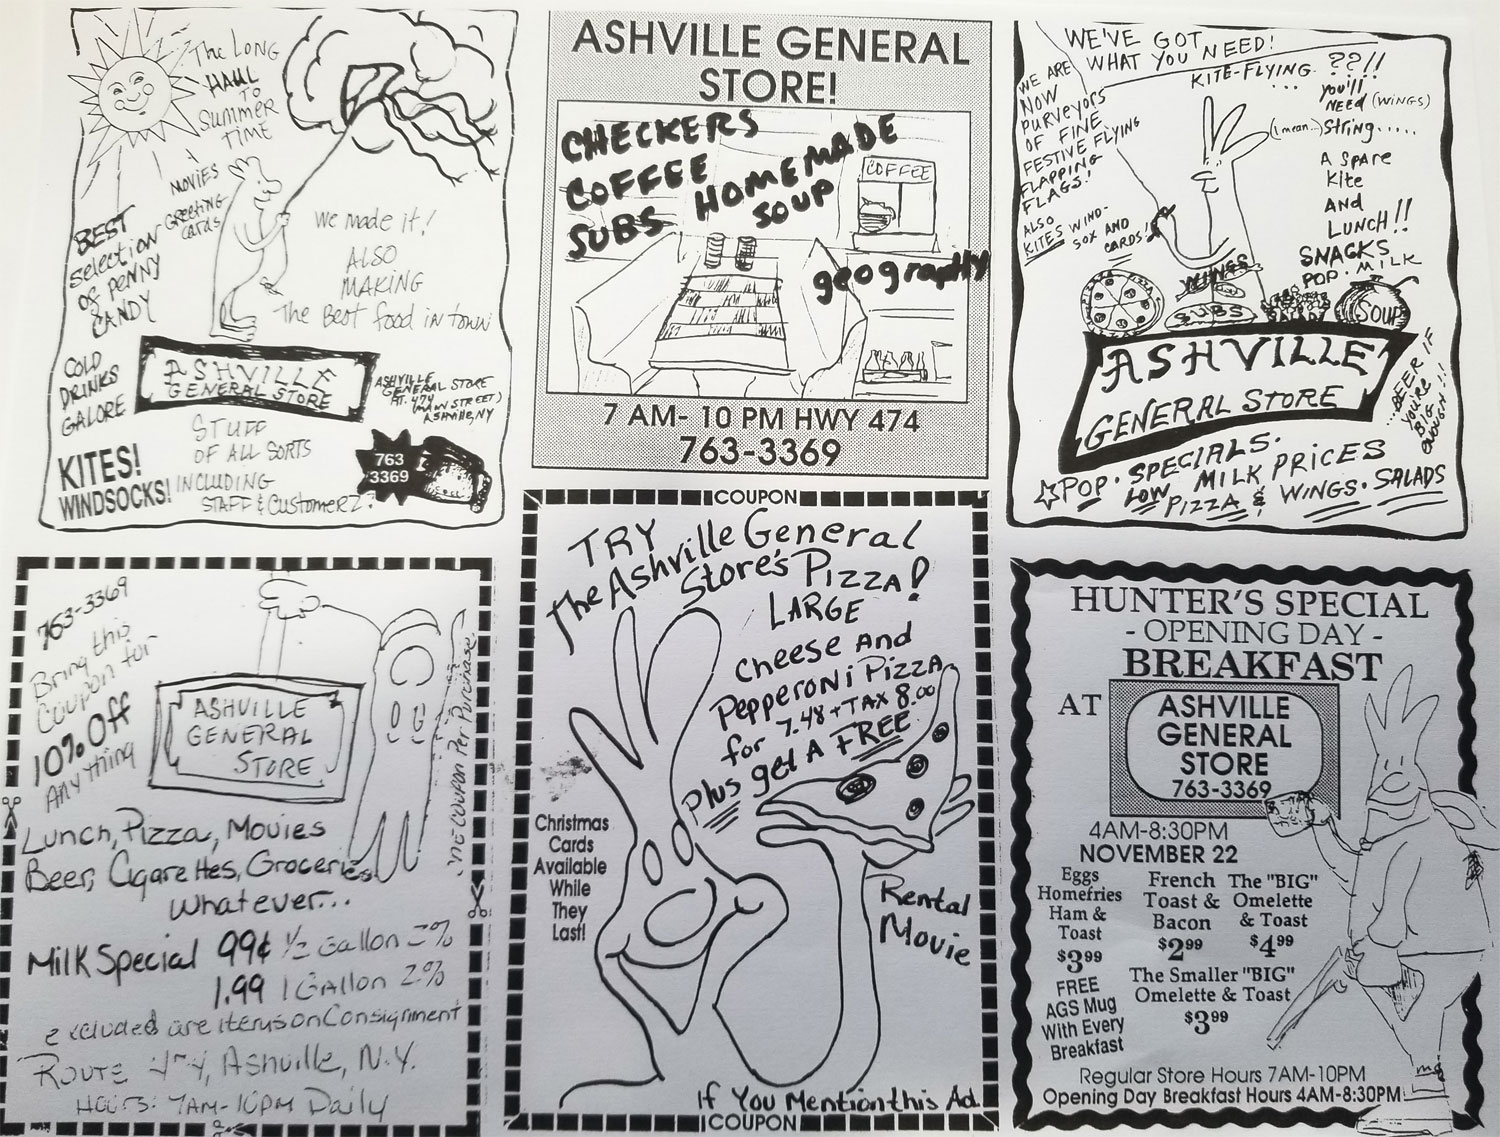 The Long
Haul
to
Summer
Time
Movies
Greeting
cards
BEST
selection
of penny
CANDY
We made it!
ALSO
MAKING
The Best food in town
COLD
DRINKS
GALORE
ASHVILLE
GENERAL STORE
ASHVILLE
GENERAL STORE
RT. 474
(MAIN STREET)
ASHVILLE, NY
STUFF
OF ALL SORTS
INCLUDING
STAFF & CustomerZ?
KITES!
WINDSOCKS!
763
3369
ASHVILLE GENERAL
STORE!
CHECKERS
COFFEE
SUBS
HOMEMADE
SOUP
COFFEE
geography
7 AM- 10 PM HWY 474
763-3369
WE'VE GOT
WHAT YOU NEED!
WE ARE
NOW
PURVEYORS
OF FINE
FESTIVE FLYING
FLAPPING
FLAGS!
ALSO
KITES WIND-
SOX AND
CARDS!
KITE-FLYING ??!!
...
you'll
NEED (WINGS)
(I mean...) String.....
A SPARE
Kite
AND
LUNCH!!
SNACKS
POP. MILK
WINGS
SUBS
SOUP
ASHVILLE
GENERAL STORE
...BEER IF
YOU'RE
BIG
ENOUGH!!
POP. SPECIALS.
LOW MILK PRICES
PIZZA & WINGS. SALADS
763-3369
Bring this
Coupon for
10% Off
Anything
ASHVILLE
GENERAL
STORE
one coupon Per Purchase
Lunch, Pizza, Movies
Beer, Cigarettes, Groceries
Whatever...
Milk Special 99¢ ½ Gallon 2%
1.99 1 Gallon 2%
excluded are items on Consignment
Route 474, Ashville, N.Y.
Hours: 7AM-10PM Daily
COUPON
TRY
The Ashville General
Store's Pizza!
LARGE
Cheese And
Pepperoni Pizza
for 7.48 + TAX 8.00
Plus get A FREE
Rental
Movie
Christmas
Cards
Available
While
They
Last!
If You Mention this Ad.
COUPON
HUNTER'S SPECIAL
- OPENING DAY -
BREAKFAST
AT
ASHVILLE
GENERAL
STORE
763-3369
4AM-8:30PM
NOVEMBER 22
Eggs
Homefries
Ham &
Toast
$3.99
French
Toast &
Bacon
$2.99
The "BIG"
Omelette
& Toast
$4.99
The Smaller "BIG"
Omelette & Toast
$3.99
FREE
AGS Mug
With Every
Breakfast
Regular Store Hours 7AM-10PM
Opening Day Breakfast Hours 4AM-8:30PM